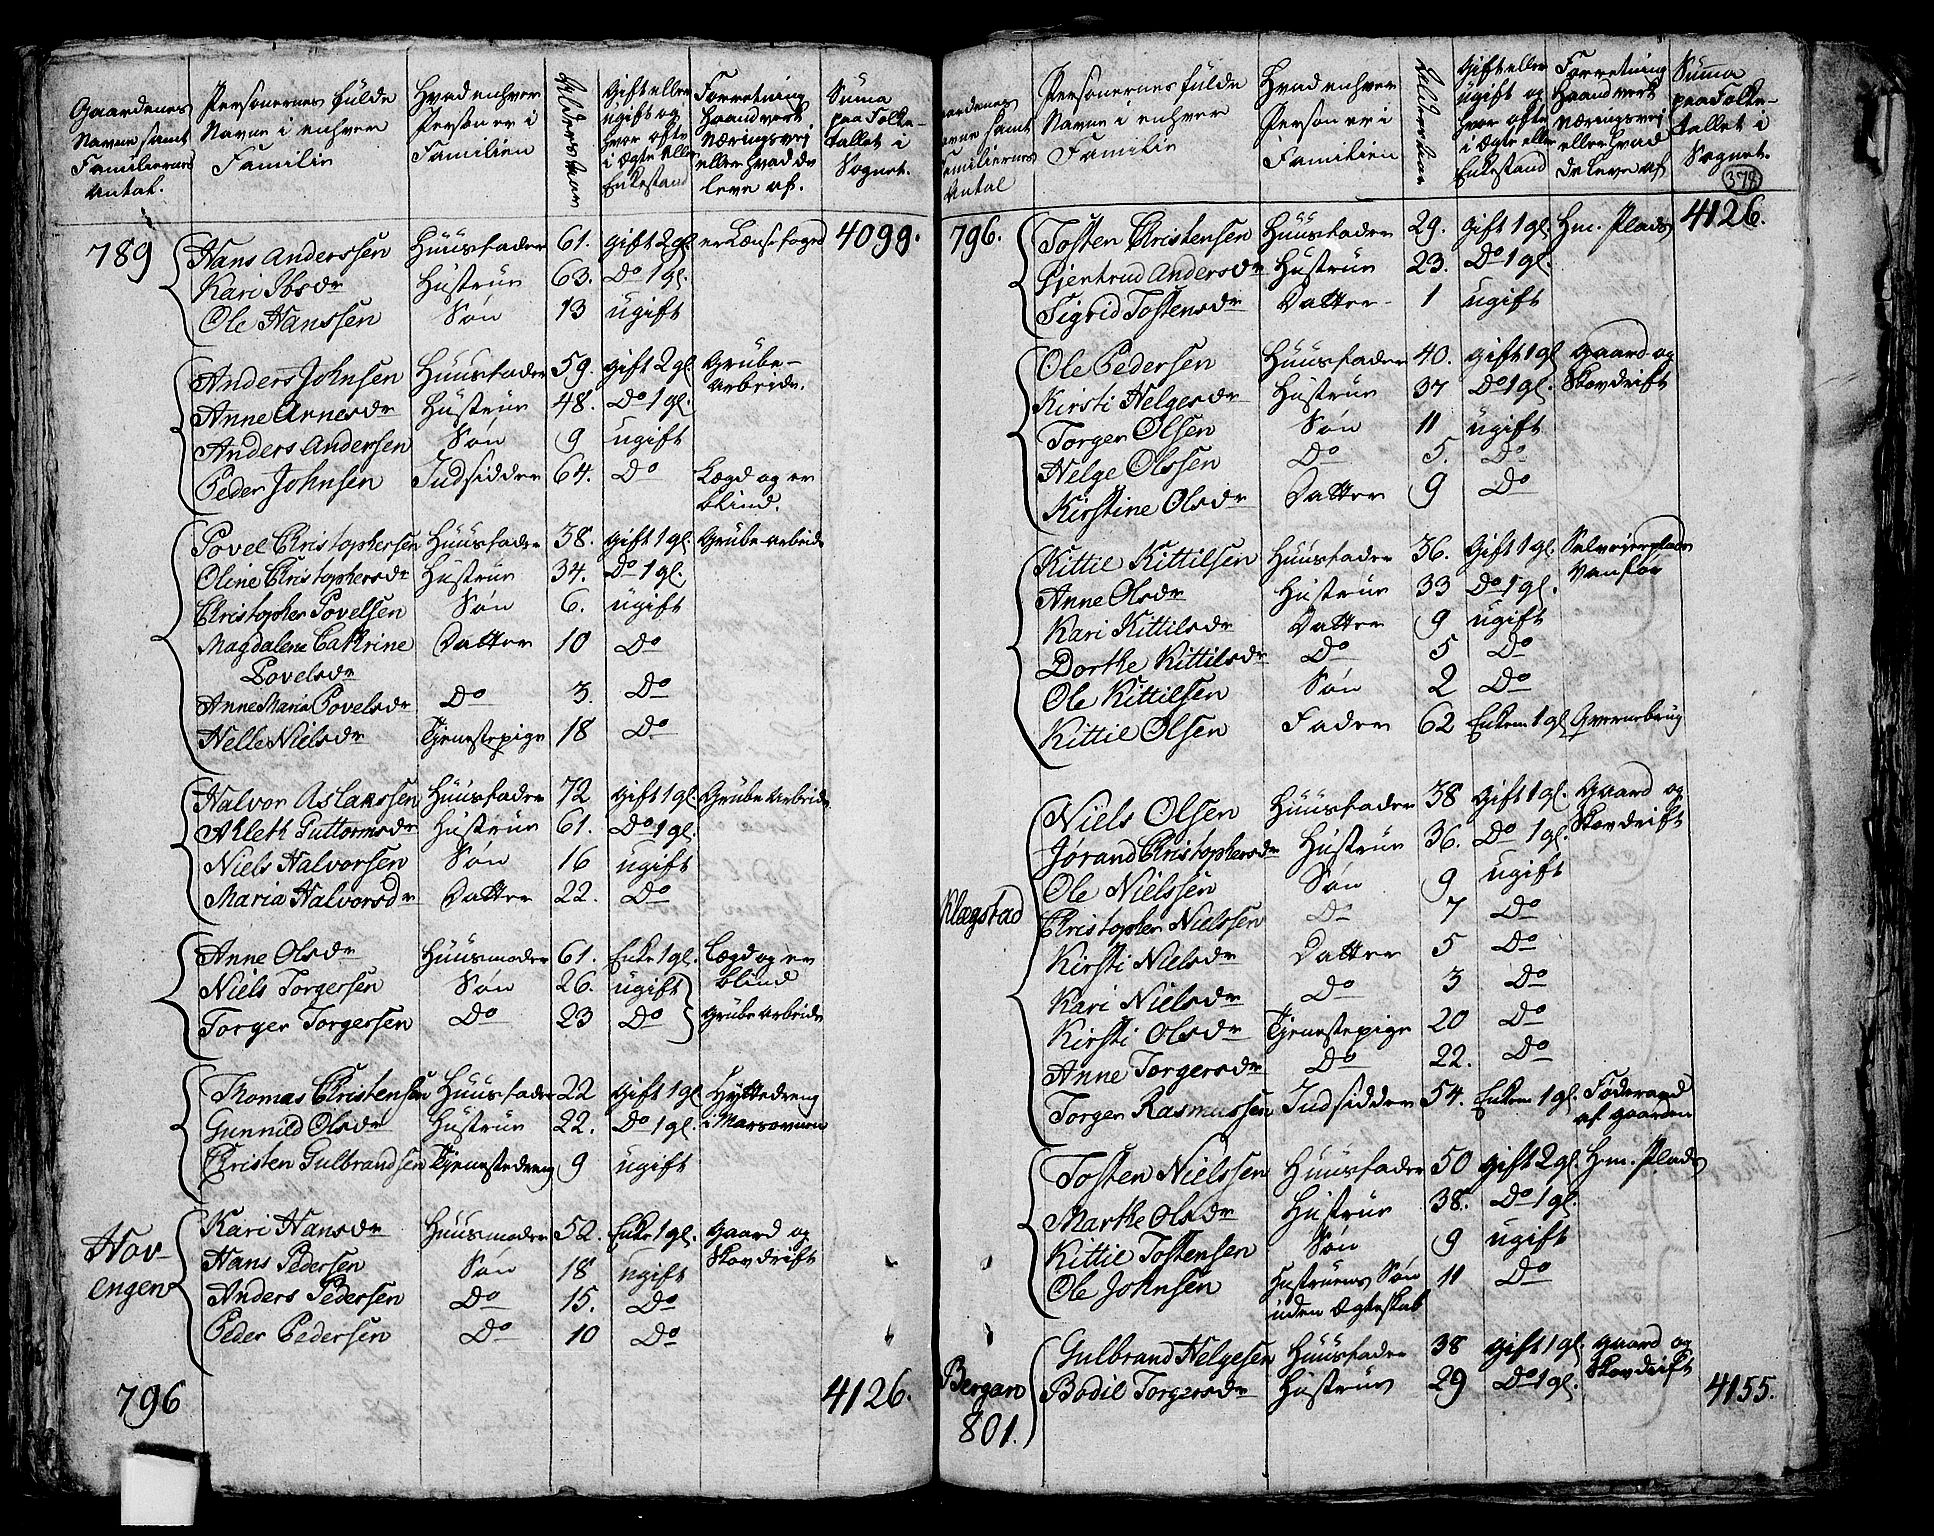 Gaardenes Navne samt Familiernes Antal. | Personernes fulde Navne i enhver Familie | Hvad enhver Person er i Familien | Alders Aar | Gift eller ugift og hvor ofte i Ægte eller Enkestand | Forretning Haandverk Næringsvej eller hvad de leve af. | Summa paa Folketallet i Sognet.
789 Hans Anderssen Huusfader 61. gift 2 gl. er Lænsfoged 4099.
Kari Ibsdr Hustrue 63. Do 1 gl.
Ole Hanssen Søn 13 ugift
Anders Johnsen Huusfader 59. gift 2 gl. Grube-
arbeide.
Anne Arnesdr Hustrue 48. Do 1 gl.
Anders Andersen Søn 9 ugift
Peder Johnsen Indsidder 64. Do Lægd og er
blind.
Povel Christophersen Huusfader 38. gift 1 gl. Grube arbeide
Oline Christophersdr Hustrue 34. Do 1 gl.
Christopher Povelsen Søn 6. ugift
Magdalene Cathrine Datter 10 Do
Povelsdr
Anne Maria Povelsdr Do 3. Do
Helle Nielsdr Tjenestepige 18 Do
Halvor Aslaksen Huusfader 72 gift 1 gl. Grube Arbeide
Ahleth Guttormsdr Hustrue 61. Do 1 gl.
Niels Halvorsen Søn 16 ugift
Maria Halvorsdr Datter 22. Do
Anne Olsdr Huusmoder 61. Enke 1 gl. Lægd og er
blind
Niels Torgersen Søn 26. ugift
Torger Torgersen Do 23 Do Grube arbeide
Thomas Christensen Huusfader 22 gift 1 gl Hyttedreng
i Marsovnene
Gunnild Olsdr Hustrue 22. Do 1 gl.
Christen Gulbrandsen Tjenestedreng 9 ugift
Hov-
engen
Kari Hansdr Huusmoder 52. Enke 1 gl. Gaard og
Skovdrift
Hans Pedersen Søn 18 ugift
Anders Pedersen Do 15. Do
Peder Pedersen Do 10 Do
796 4126.
Gaardenes Navne samt Familiernes Antal | Personernes fulde Navne i enhver Familie | Hvad enhver Person er i Familien | Alders Aar | Gift eller ugift og hvor ofte i Ægte eller Enkestand | Forretning Haandverk Næringsvej eller hvad de leve af | Summa paa Folketallet i Sognet.
378
796. Tosten Christensen Huusfader 29. gift 1 gl. Hm. Plads 4126.
Gjertrud Andersdr Hustrue 23. Do 1 gl.
Sigrid Tostensdr Datter 1 ugift
Ole Pedersen Huusfader 40. gift 1 gl Gaard og
Skovdrift
Kirsti Helgesdr Hustrue 37 Do 1 gl.
Torger Olsen Søn 11 ugift
Helge Olssen Do 5. Do
Kirstine Olsdr Datter 9 Do
Kittil Kittilsen Huusfader 36. Gift 1 gl. Selveierplads
Vanfør
Anne Olsdr Hustrue 33 Do 1 gl.
Kari Kittilsdr Datter 9 ugift
Dorthe Kittilsdr Do 5 Do
Ole Kittilsen Søn 2 Do
Kittil Olsen Fader 62 Enkem 1 gl Qvernebrug
Klægstad
Niels Olsen Huusfader 38 gift 1 gl. Gaard og
Skovdrift
Jørand Christophersdr Hustrue 36. Do 1 gl.
Ole Nielssen Søn 9 ugift
Christopher Nielssen Do 7 Do
Kirsti Nielsdr Datter 5 Do
Kari Nielsdr Do 3 Do
Kirsti Olsdr Tjenestepige 20 Do
Anne Torgersdr Do 22. Do
Torger Rasmussen Indsidder 54. Enkem 1 gl. Føderaad
af gaarden
Tosten Nielssen Huusfader 50 gift 2 gl. Hm. Plads
Marthe Olsdr Hustrue 38. Do 1 gl.
Kittil Tostensen Søn 9 ugift
Ole Johnsen Hustruens Søn 11 Do
uden Ægteskab
Gulbrand Helgesen Huusfader 38 gift 1 gl. gaard og
Skovdrift
Bergan Bodil Torgersdr Hustrue 29 Do 1 gl.
801. 4155.